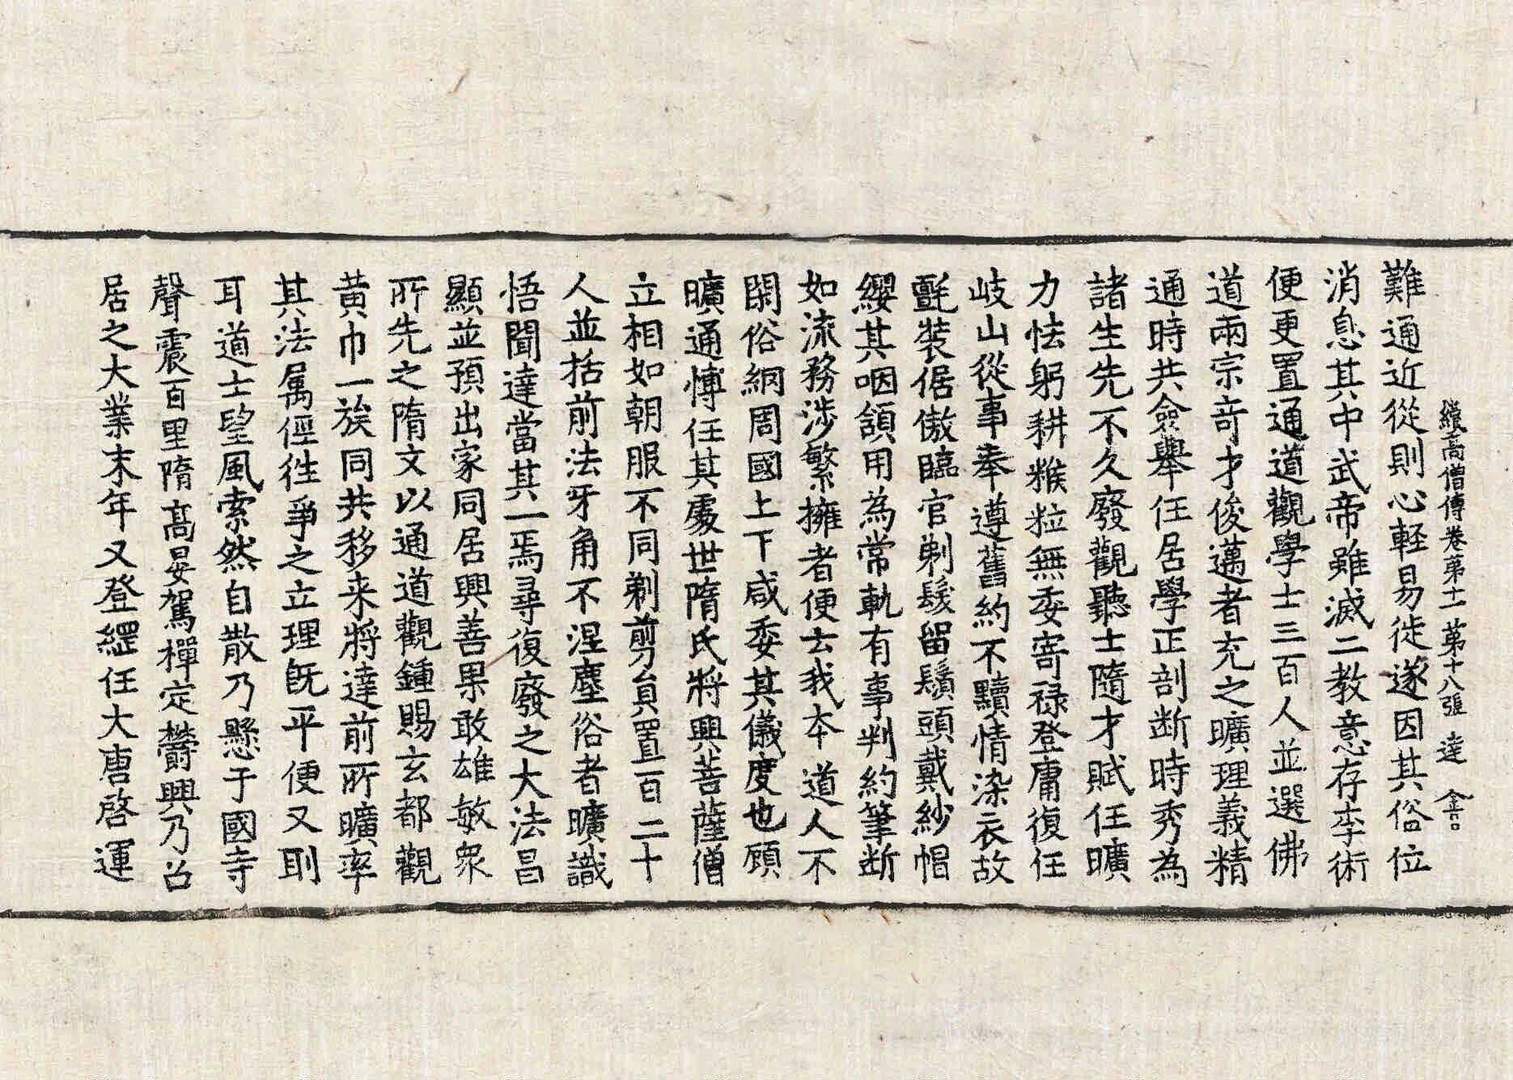 續高僧傳卷第十一 第十八張 達 㐭
難通近從則心軽易徙遂因其俗位
消息其中武帝雖滅二教意存李術
便更置通道觀學士三百人並選佛
道兩宗竒才俊邁者充之曠理義精
通時共僉舉任居學正剖断時秀為
諸生先不久廢觀聽士隨才賦任曠
力怯躬耕糇粒無委寄禄登庸復任
岐山從事奉遵舊約不黷情染衣故
氈裝倨傲臨官剃髮留鬚頭戴紗帽
纓其咽頷用為常軌有事判約筆断
如流務涉繁擁者便云我本道人不
閑俗網周國上下咸委其儀度也顧
曠通博任其處世隋氏將興菩薩僧
立相如朝服不同剃剪員置百二十
人並括前法牙角不涅塵俗者曠識
悟聞達當其一焉尋復廢之大法昌
顯並預出家同居興善果敢雄敏眾
所先之隋文以通道觀鍾賜玄都觀
黃巾一族同共移来將達前所曠率
其法属徑往爭之立理旣平便又則
耳道士望風索然自散乃懸于國寺
聲震百里隋髙晏駕禪定欝興乃召
居之大業末年又登緫任大唐啓運